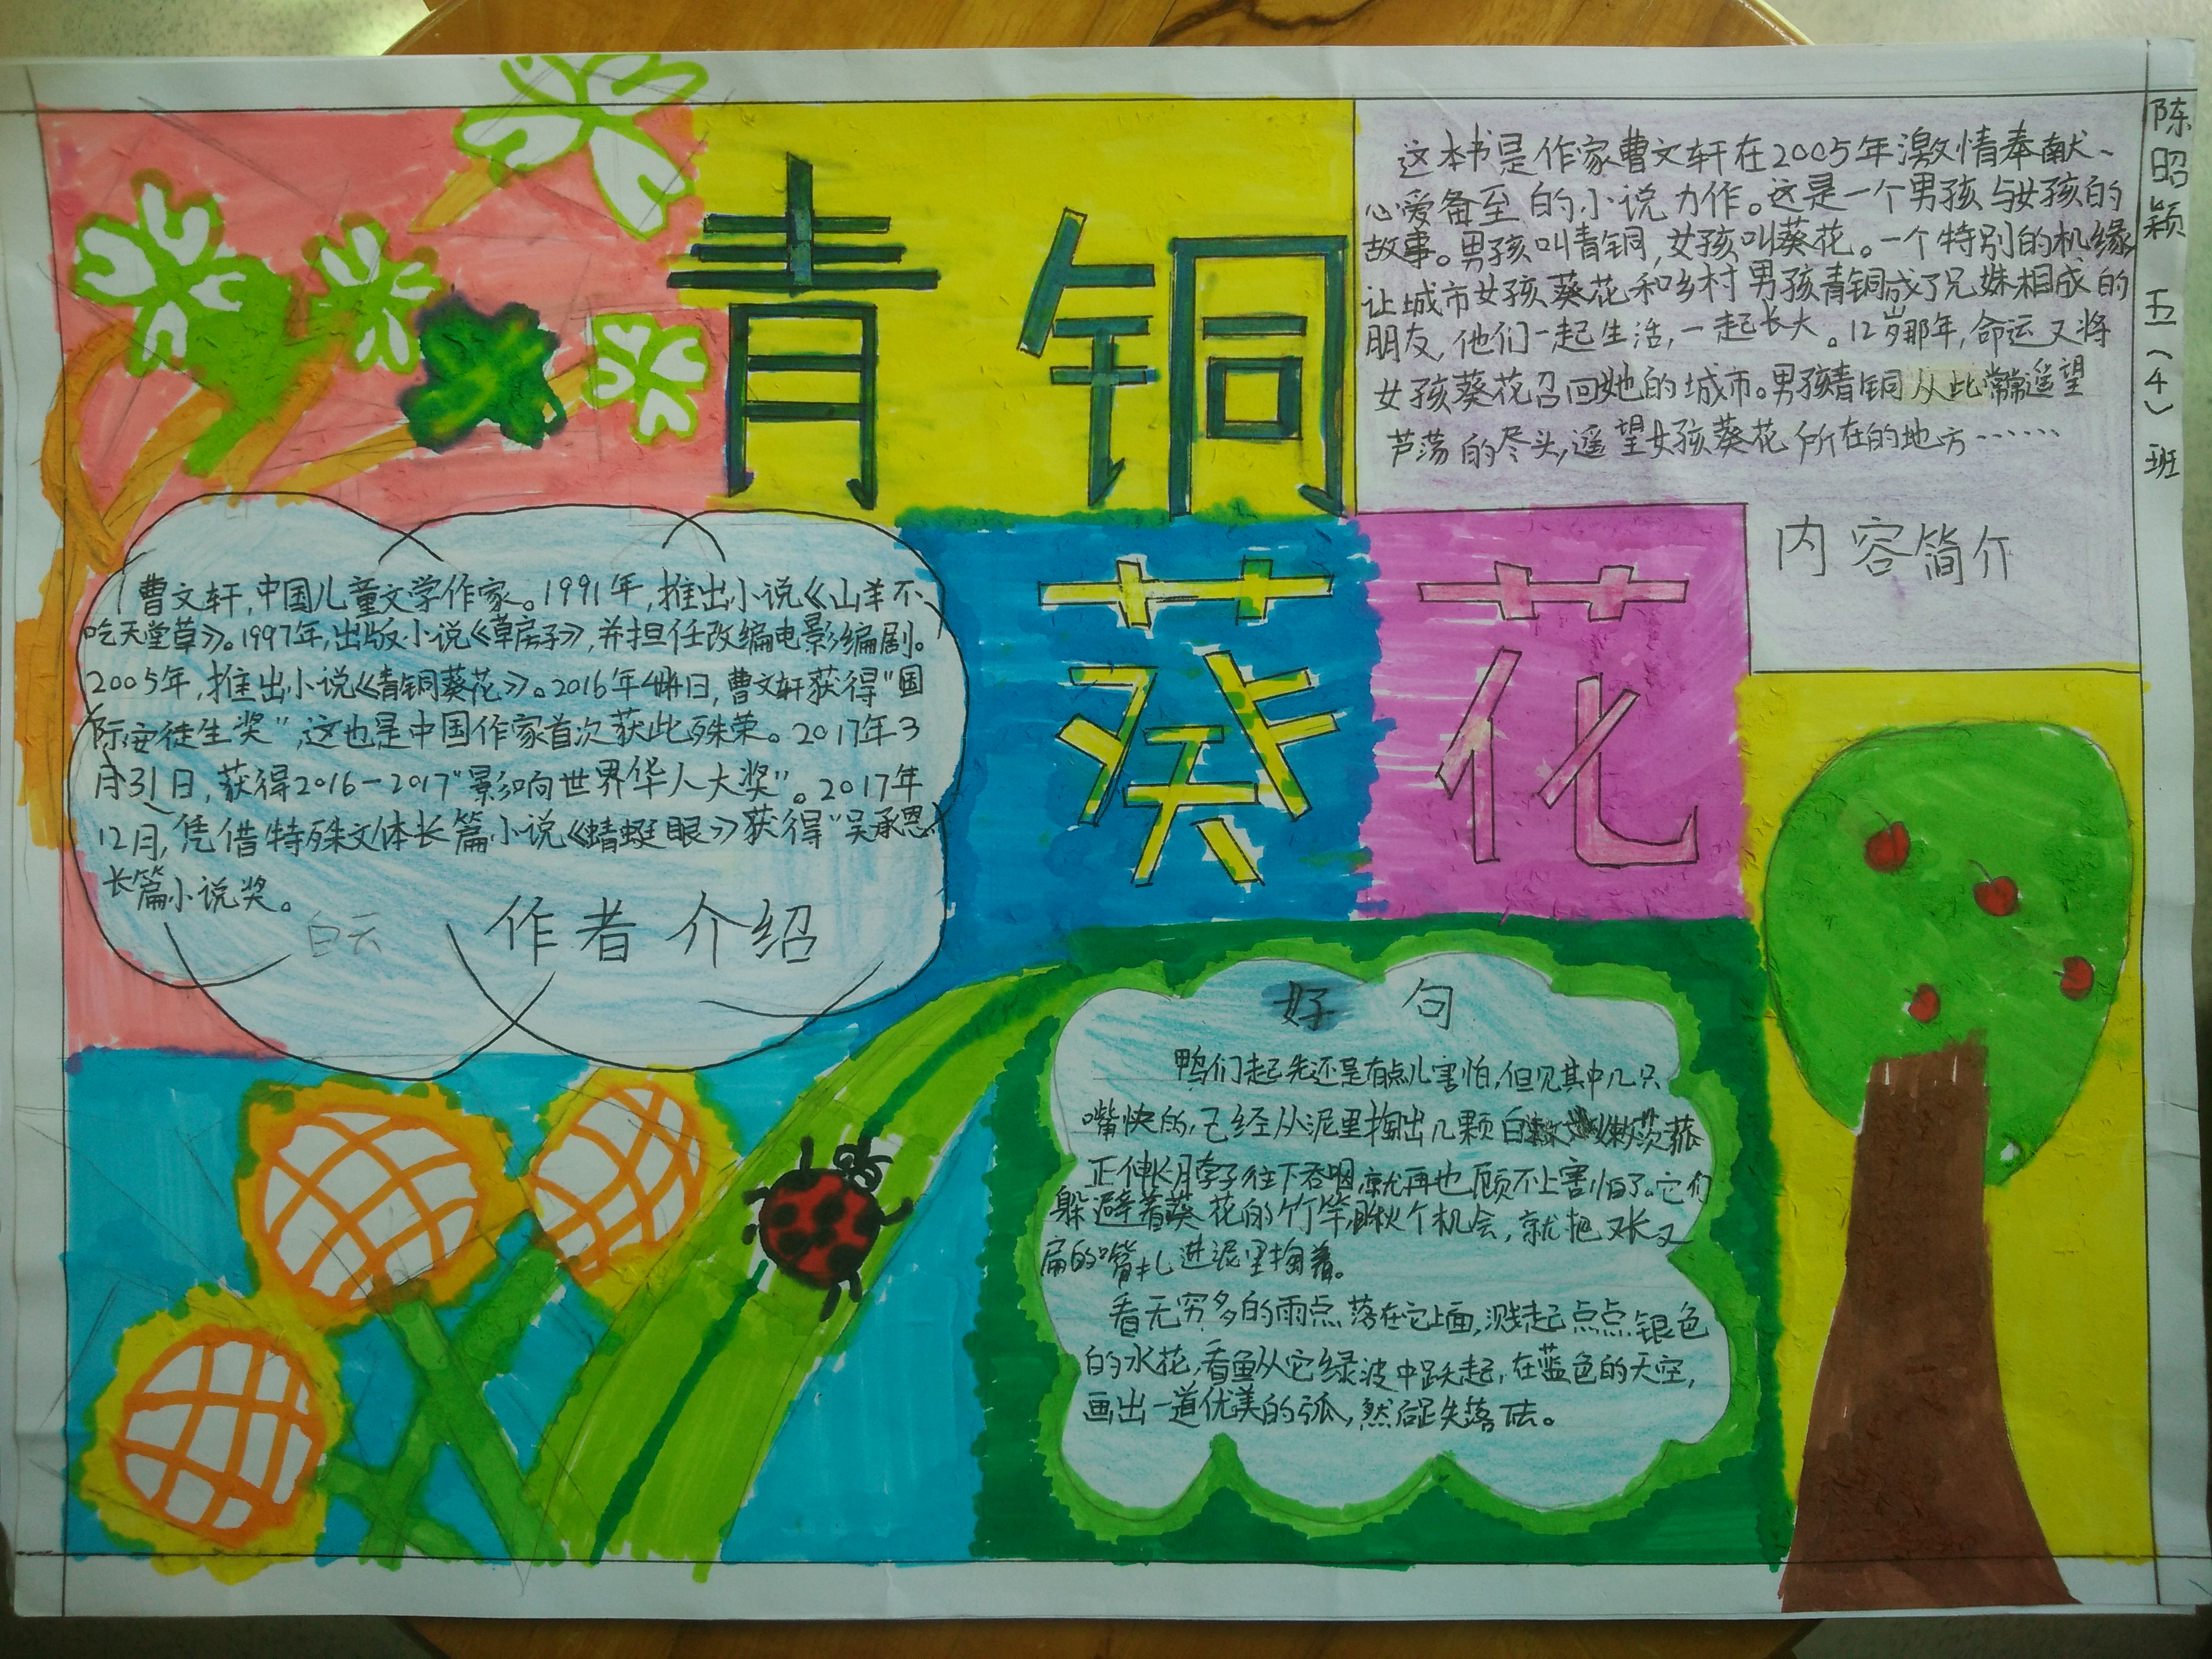 青铜
葵花
这本书是作家曹文轩在2005年激情奉献、
心爱备至的小说力作。这是一个男孩与女孩的
故事。男孩叫青铜,女孩叫葵花。一个特别的机缘
让城市女孩葵花和乡村男孩青铜成了兄妹相成的
朋友,他们一起生活,一起长大。12岁那年,命运又将
女孩葵花召回她的城市。男孩青铜从此常常遥望
芦荡的尽头,遥望女孩葵花所在的地方……
内容简介
陈昭颖 五(4)班
曹文轩,中国儿童文学作家。1991年,推出小说《山羊不
吃天堂草》。1997年,出版小说《草房子》,并担任改编电影编剧。
2005年,推出小说《青铜葵花》。2016年4月4日,曹文轩获得"国
际安徒生奖",这也是中国作家首次获此殊荣。2017年3
月31日,获得2016-2017"影响世界华人大奖"。2017年
12月,凭借特殊文体长篇小说《蜻蜓眼》获得"吴承恩
长篇小说奖。
白云
作者介绍
好句
鸭们起先还是有点儿害怕,但见其中几只
嘴快的,已经从泥里掏出几颗白嫩嫩茨菰
正伸长脖子往下吞咽,就再也顾不上害怕了。它们
躲避着葵花的竹竿,瞅个机会,就把又长又
扁的嘴扎进泥里掏着。
看无穷多的雨点落在它上面,溅起点点银色
的水花,看鱼从它绿波中跃起,在蓝色的天空,
画出一道优美的弧,然后跌落下去。